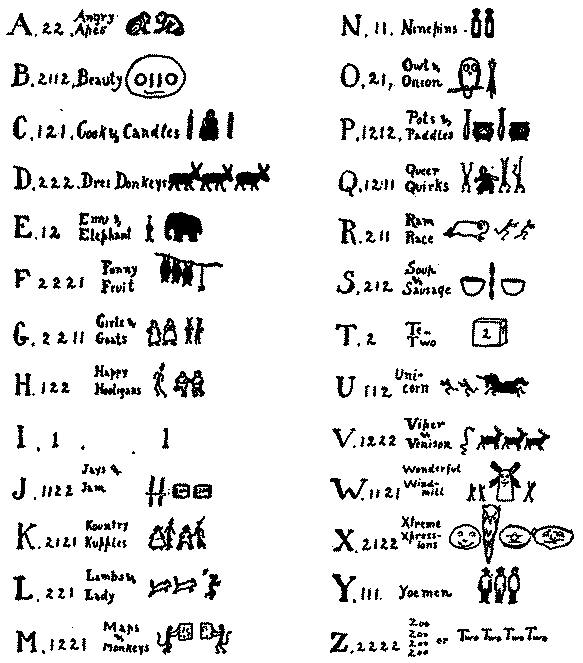 A. 22. Angry
Apes
B. 2112. Beauty
C. 121. Cook & Candles
D. 222. Dres Donkeys
E. 12 Emu &
Elephant
F 2221 Funny
Fruit
G. 2211 Girls &
Goats
H. 122 Happy
Hooligans
I. 1 . 1
J. 1122 Jays &
Jam
K. 2121 Kountry
Kupples
L. 221 Lambs &
Lady
M. 1221 Maps
&
Monkeys
N. 11. Ninepins.
O. 21, Owl &
Onion
P. 1212, Pots &
Paddles
Q. 1211 Queer
Quirks
R. 211 Ram
Race
S. 212 Soup
&
Sausage
T. 2 Te-
Two 2
U 112 Uni-
corn
V. 1222 Viper
&
Venison
W. 1121 Wonderful
Wind-
mill
X. 2122 Xtreme
Xpress-
ions
Y. 111. Yoemen
Z. 2222 Zoo
Zoo
Zoo
Zoo or Two Two Two Two